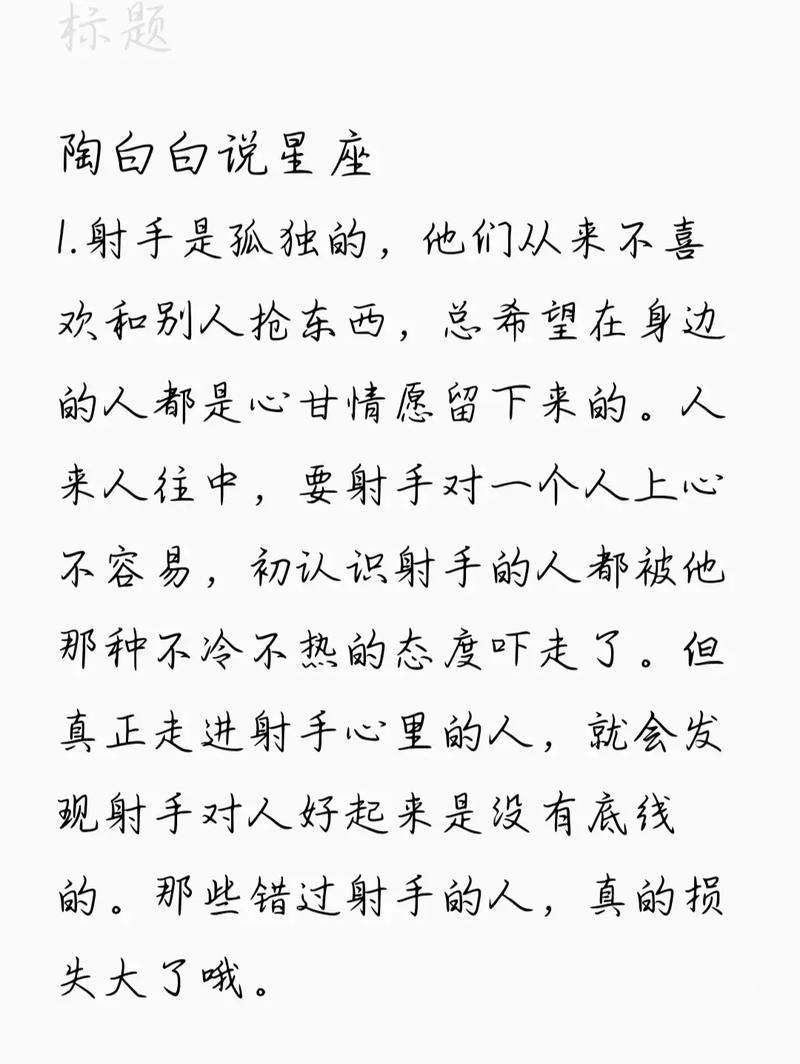 标题
陶白白说星座
1.射手是孤独的，他们从来不喜
欢和别人抢东西，总希望在身边
的人都是心甘情愿留下来的。人
来人往中，要射手对一个人上心
不容易，初认识射手的人都被他
那种不冷不热的态度吓走了。但
真正走进射手心里的人，就会发
现射手对人好起来是没有底线
的。那些错过射手的人，真的损
失大了哦。